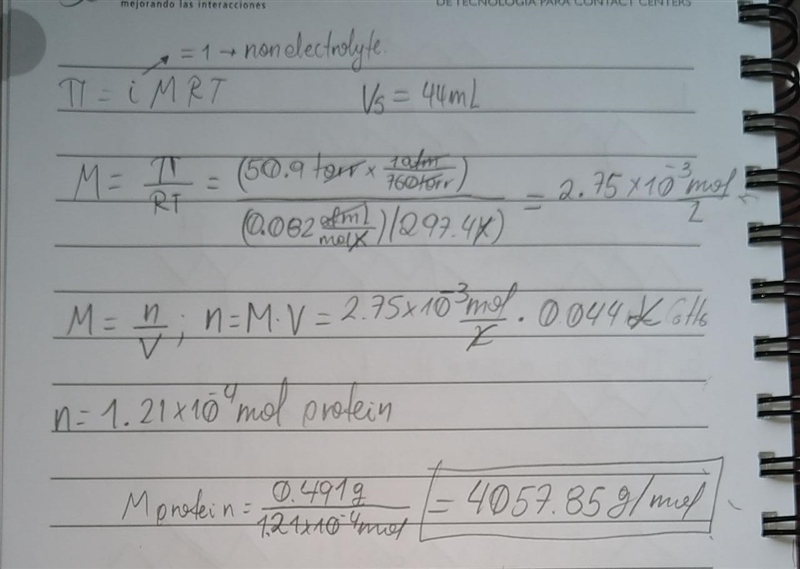 mejorando las interacciones
DE TECNOLOGÍA PARA CONTACT CENTERS
= 1 → nonelectrolyte.
Π = i M R T Vs = 44 mL
M = Π/RT = (50.9 torr × 1 atm/760 torr)/(0.082 atm L/mol K)(297.4 K) = 2.75 × 10⁻³ mol/L
M = n/V ; n = M · V = 2.75 × 10⁻³ mol/L · 0.044 L C6H6
n = 1.21 × 10⁻⁴ mol protein
M protein = 0.491 g/1.21 × 10⁻⁴ mol = 4057.85 g/mol